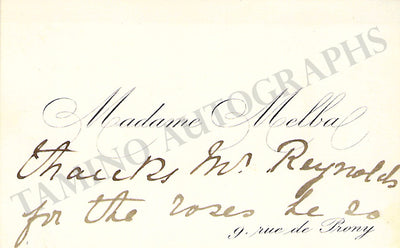 TAMINO AUTOGRAPHS
Madame Melba
thanks Mr Reynolds
for the roses he so
9. rue de Prony